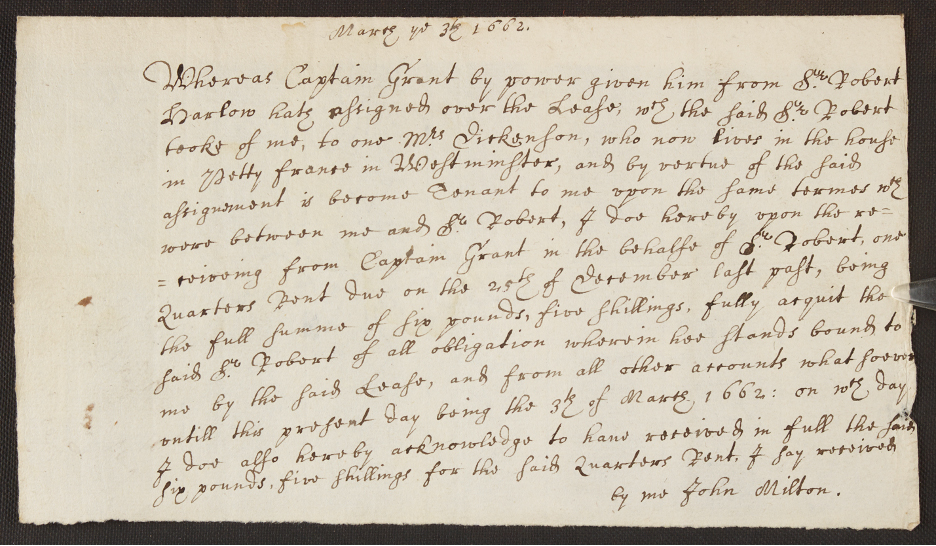 March ye 3th 1662.
Whereas Captain Grant by power given him from Sr. Robert
Harlow hath assigned over the Lease, wch the said Sr. Robert
tooke of me, to one Mrs Dickenson, who now lives in the house
in Petty france in Westminster, and by vertue of the said
assignement is become Tenant to me upon the same termes wch
were between me and Sr. Robert, I doe hereby upon the re=
=ceiveing from Captain Grant in the behalfe of Sr. Robert, one
Quarters Rent due on the 25th of December last past, being
the full summe of six pounds, five shillings, fully acquit the
said Sr. Robert of all obligation wherein hee stands bound to
me by the said Lease, and from all other accounts what soever
untill this present day being the 3th of March 1662: on wch day
I doe also hereby acknowledge to have received in full the said
six pounds, five shillings for the said Quarters Rent. I say received
by me John Milton.